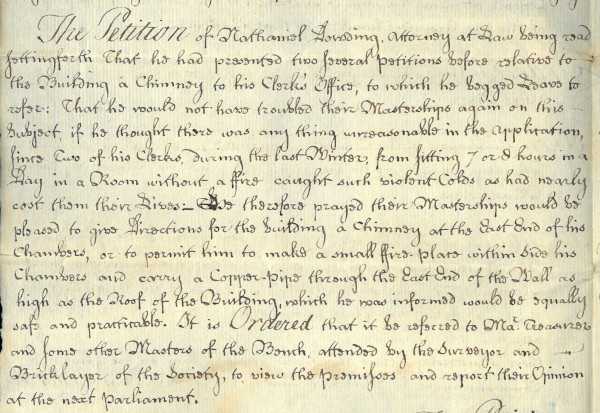 The Petition of Nathaniel Dowding, Attorney at Law being read
Setting forth That he had presented two several Petitions before relative to
the Building a Chimney to his Clerks Office, to which he begged Leave to
refer: That he would not have troubled their Masterships again on this
Subject, if he thought there was any thing unreasonable in the Application,
since Two of his Clerks, during the last Winter, from sitting 7 or 8 hours in a
Day in a Room without a ffire caught such violent Colds as had nearly
cost them their Lives – He therefore prayed their Masterships would be
pleased to give Directions for the Building a Chimney at the East End of his
Chambers, or to permit him to make a small ffire-Place within side his
Chambers and carry a Copper-Pipe through the East End of the Wall as
high as the Roof of the Building, which he was informed would be equally
safe and practicable. It is Ordered that it be referred to Mr. Treasurer
and some other Masters of the Bench, attended by the Surveyor and
Bricklayer of the Society, to view the Premisses and report their Opinion
at the next Parliament.